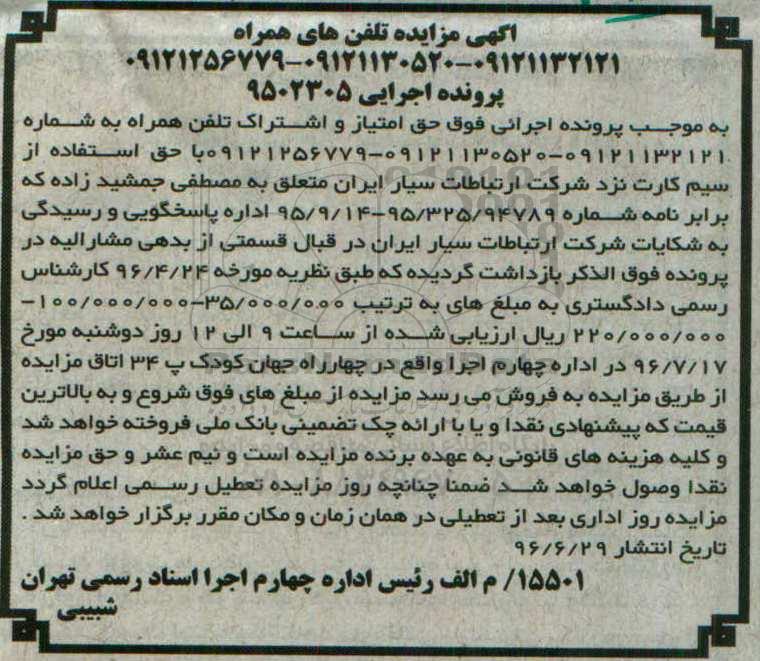 اگهی مزایده تلفن های همراه
۰۹۱۲۱۱۳۲۱۲۱-۰۹۱۲۱۱۳۰۵۲۰-۰۹۱۲۱۲۵۶۷۷۹
پرونده اجرایی ۹۵۰۲۳۰۵
به موجب پرونده اجرائی فوق حق امتیاز و اشتراک تلفن همراه به شماره
۰۹۱۲۱۱۳۲۱۲۱-۰۹۱۲۱۱۳۰۵۲۰-۰۹۱۲۱۲۵۶۷۷۹با حق استفاده از
سیم کارت نزد شرکت ارتباطات سیار ایران متعلق به مصطفی جمشید زاده که
برابر نامه شماره ۹۵/۳۲۵/۹۴۷۸۹-۹۵/۹/۱۴ اداره پاسخگویی و رسیدگی
به شکایات شرکت ارتباطات سیار ایران در قبال قسمتی از بدهی مشارالیه در
پرونده فوق الذکر بازداشت گردیده که طبق نظریه مورخه ۹۶/۴/۲۴ کارشناس
رسمی دادگستری به مبلغ های به ترتیب ۳۵/۰۰۰/۰۰۰-۱۰۰/۰۰۰/۰۰۰-
۲۲۰/۰۰۰/۰۰۰ ریال ارزیابی شده از ساعت ۹ الی ۱۲ روز دوشنبه مورخ
۹۶/۷/۱۷ در اداره چهارم اجرا واقع در چهارراه جهان کودک پ ۳۴ اتاق مزایده
از طریق مزایده به فروش می رسد مزایده از مبلغ های فوق شروع و به بالاترین
قیمت که پیشنهادی نقدا و یا با ارائه چک تضمینی بانک ملی فروخته خواهد شد
و کلیه هزینه های قانونی به عهده برنده مزایده است و نیم عشر و حق مزایده
نقدا وصول خواهد شد ضمنا چنانچه روز مزایده تعطیل رسمی اعلام گردد
مزایده روز اداری بعد از تعطیلی در همان زمان و مکان مقرر برگزار خواهد شد .
تاریخ انتشار ۹۶/۶/۲۹
۱۵۵۰۱/ م الف رئیس اداره چهارم اجرا اسناد رسمی تهران
شبیبی